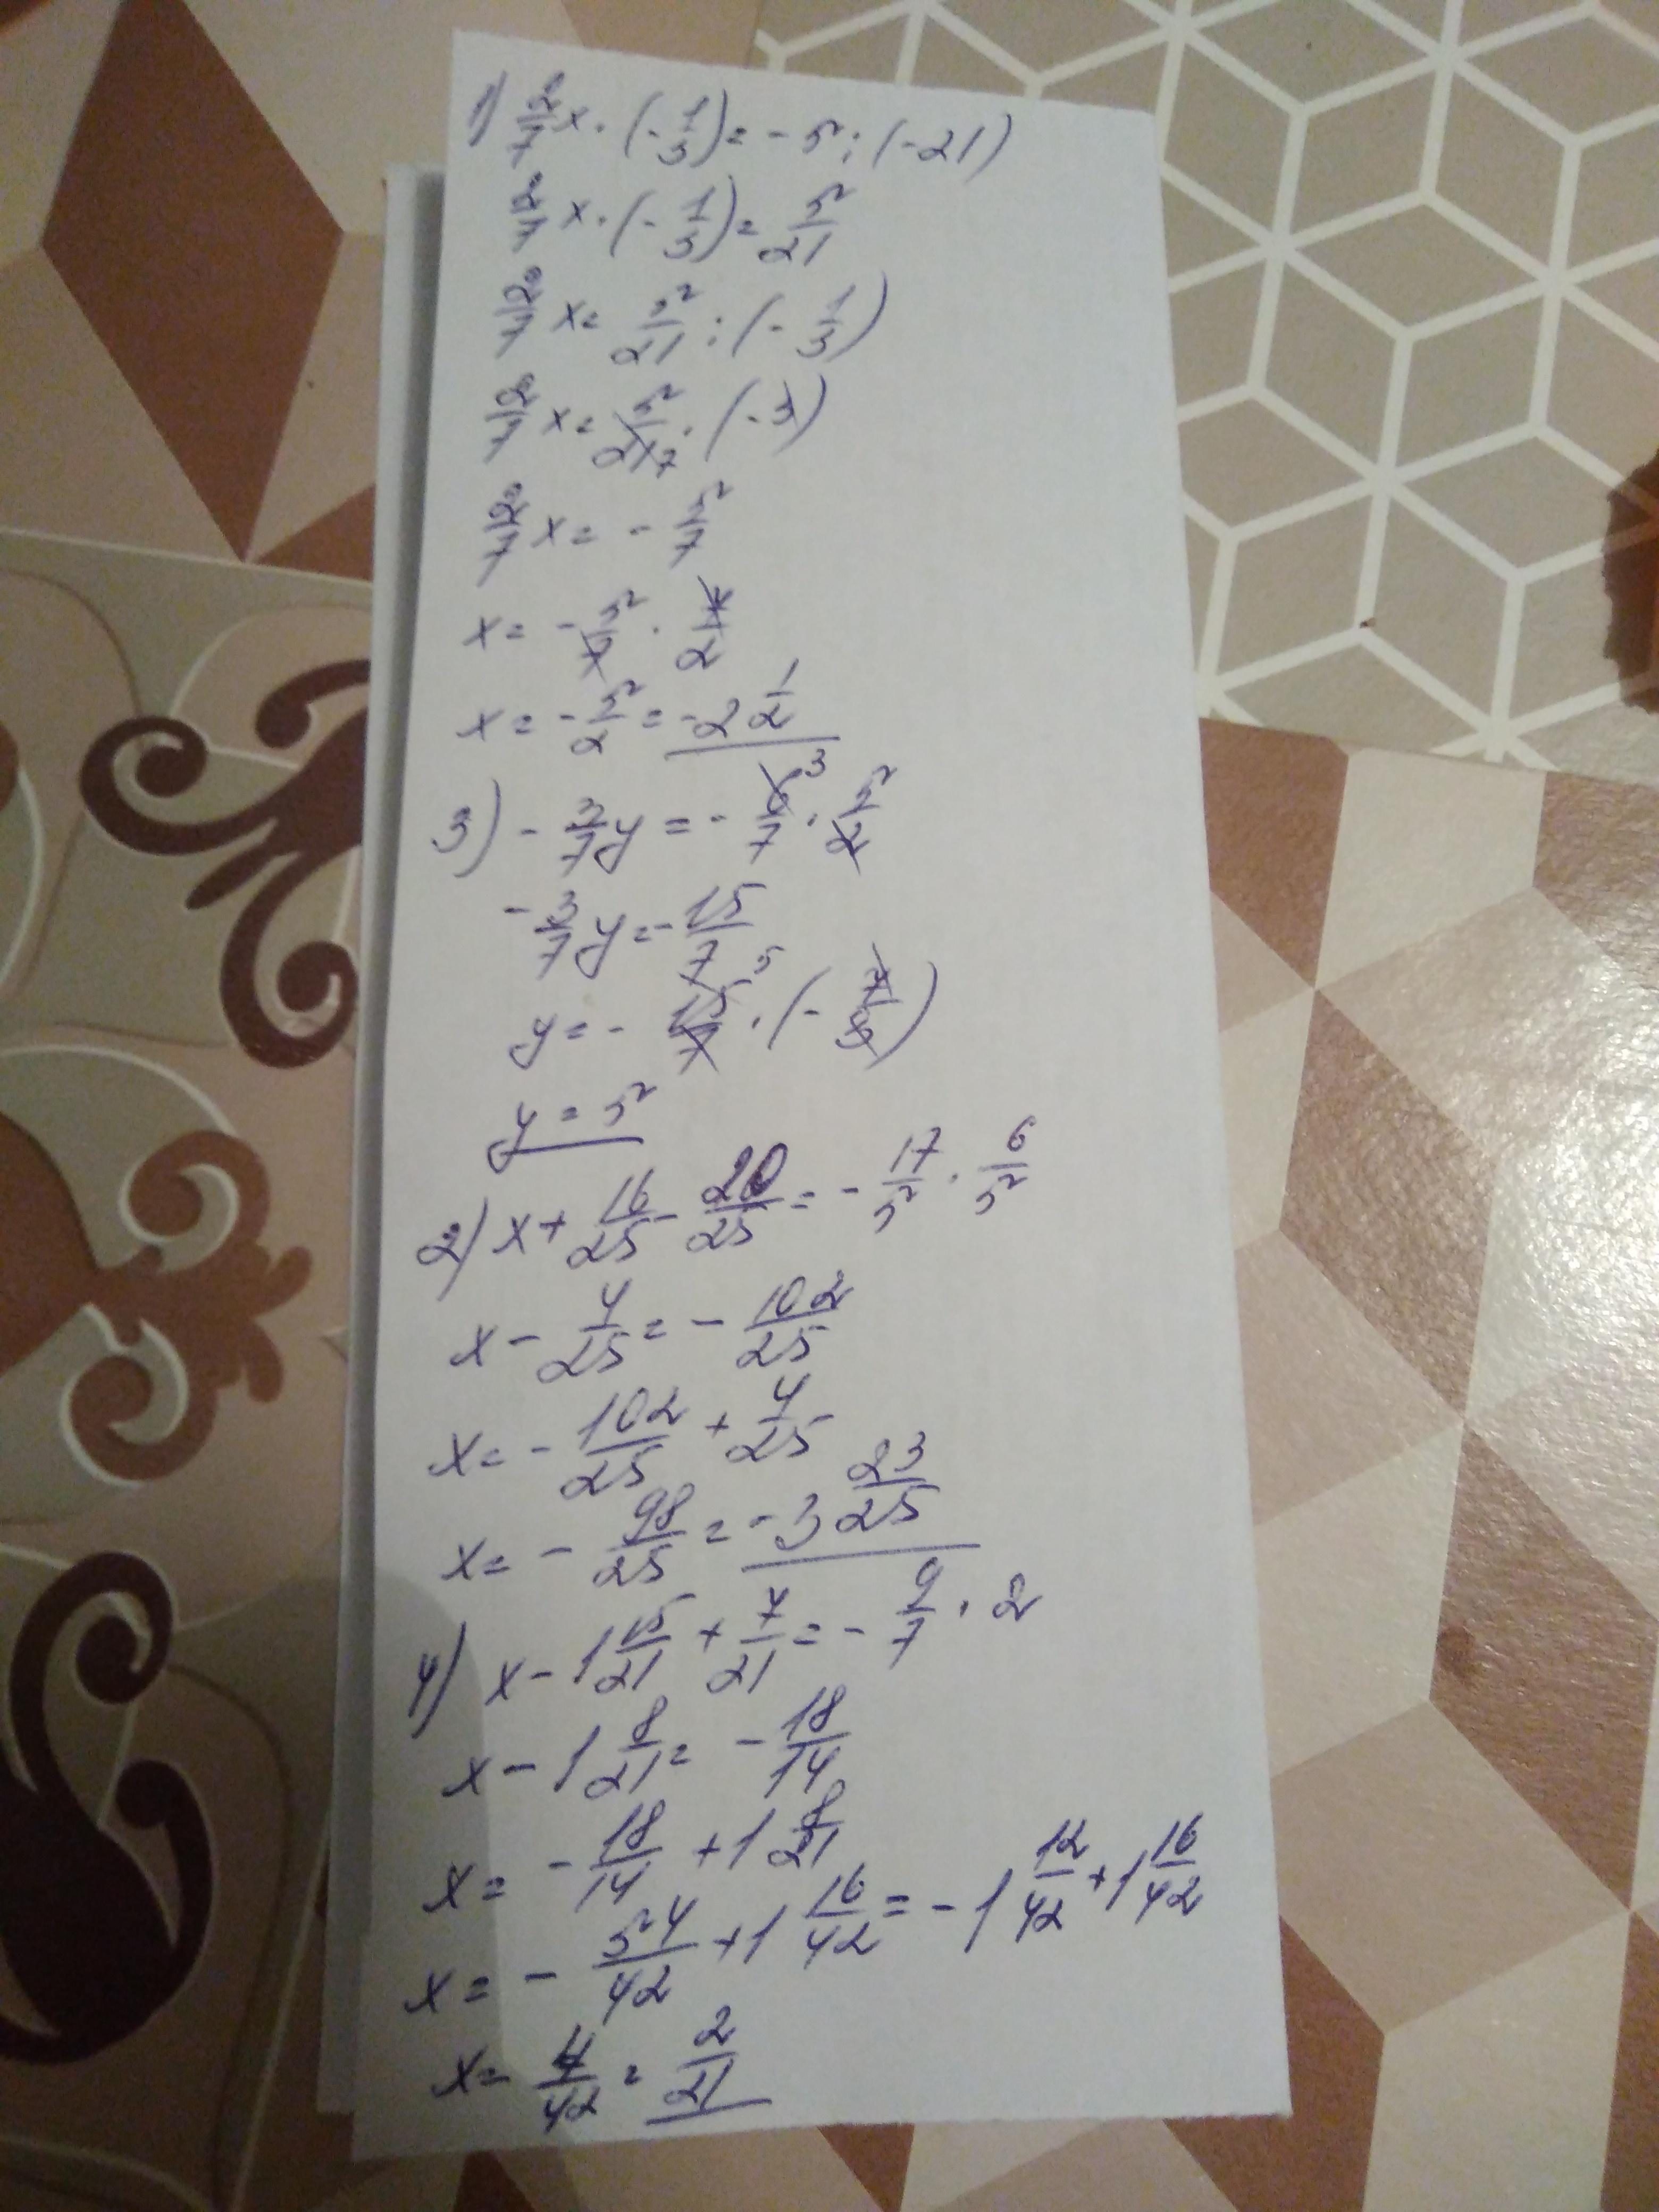 1) 2/7 x · (-1/3) = -5 : (-21)
2/7 x · (-1/3) = 5/21
2/7 x = 5/21 : (-1/3)
2/7 x = 5/21 7 · (-3)
2/7 x = - 5/7
x = - 5/7 · 7/2
x = - 5/2 = -2 1/2
3) - 3/7 y = - 6/7 3 · 5/2
- 3/7 y = - 15/7
y = - 15/7 5 · (- 7/3)
y = 5
2) x + 16/25 - 20/25 = - 17/5 · 6/5
x - 4/25 = - 102/25
x = - 102/25 + 4/25
x = - 98/25 = -3 23/25
4) x - 1 15/21 + 7/21 = - 9/7 · 2
x - 1 8/21 = - 18/14
x = - 18/14 + 1 8/21
x = - 54/42 + 1 16/42 = - 1 12/42 + 1 16/42
x = 4/42 = 2/21